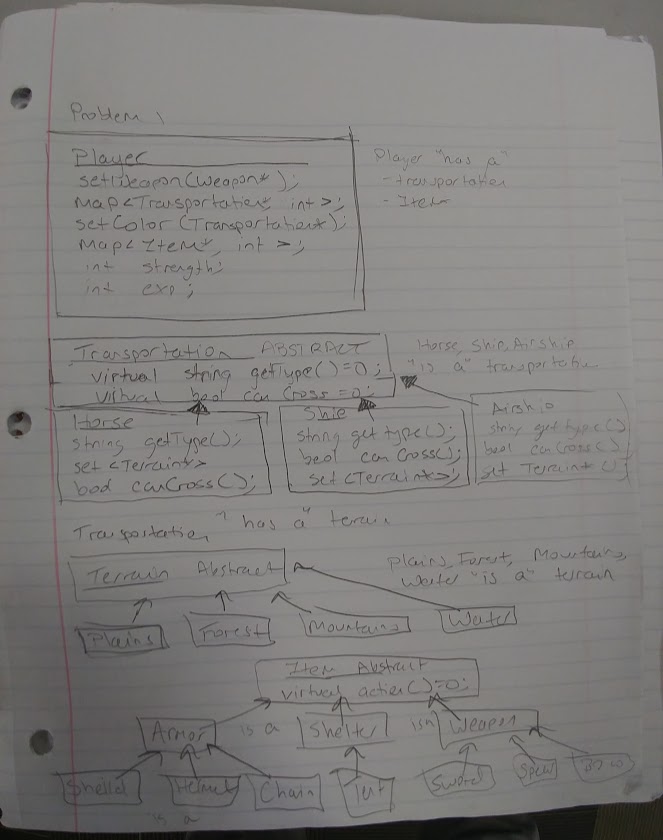 Problem 1
Player
setWeapon(Weapon*);
Map<Transportation*, int>;
setColor(Transportation*);
Map<Item*, int>;
int strength;
int exp;
Player "has a"
- transportation
- Item
Transportation ABSTRACT
virtual string getType()=0;
virtual bool canCross=0;
Horse, Ship, Airship
"is a" transportation
Horse
string getType();
set<Terrain*>
bool canCross();
Ship
string getType();
bool canCross();
set<Terrain*>;
Airship
string getType()
bool canCross()
set Terrain*
Transportation "has a" terrain
Terrain Abstract
Plains, Forest, Mountains,
Water "is a" terrain
Plains
Forest
Mountains
Water
Item Abstract
virtual action()=0;
Armor
is a
Shelter
Weapon
Sheild
Helmet
Chain
Tent
Sword
Spear
Bow
is a